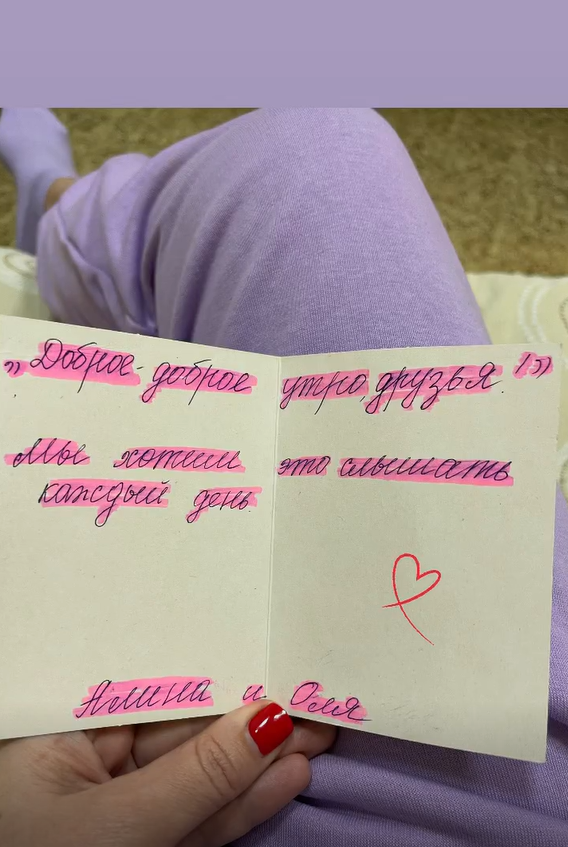 „Доброе-доброе утро, друзья!”
Мы хотим это слышать
каждый день.
Алина и Оля